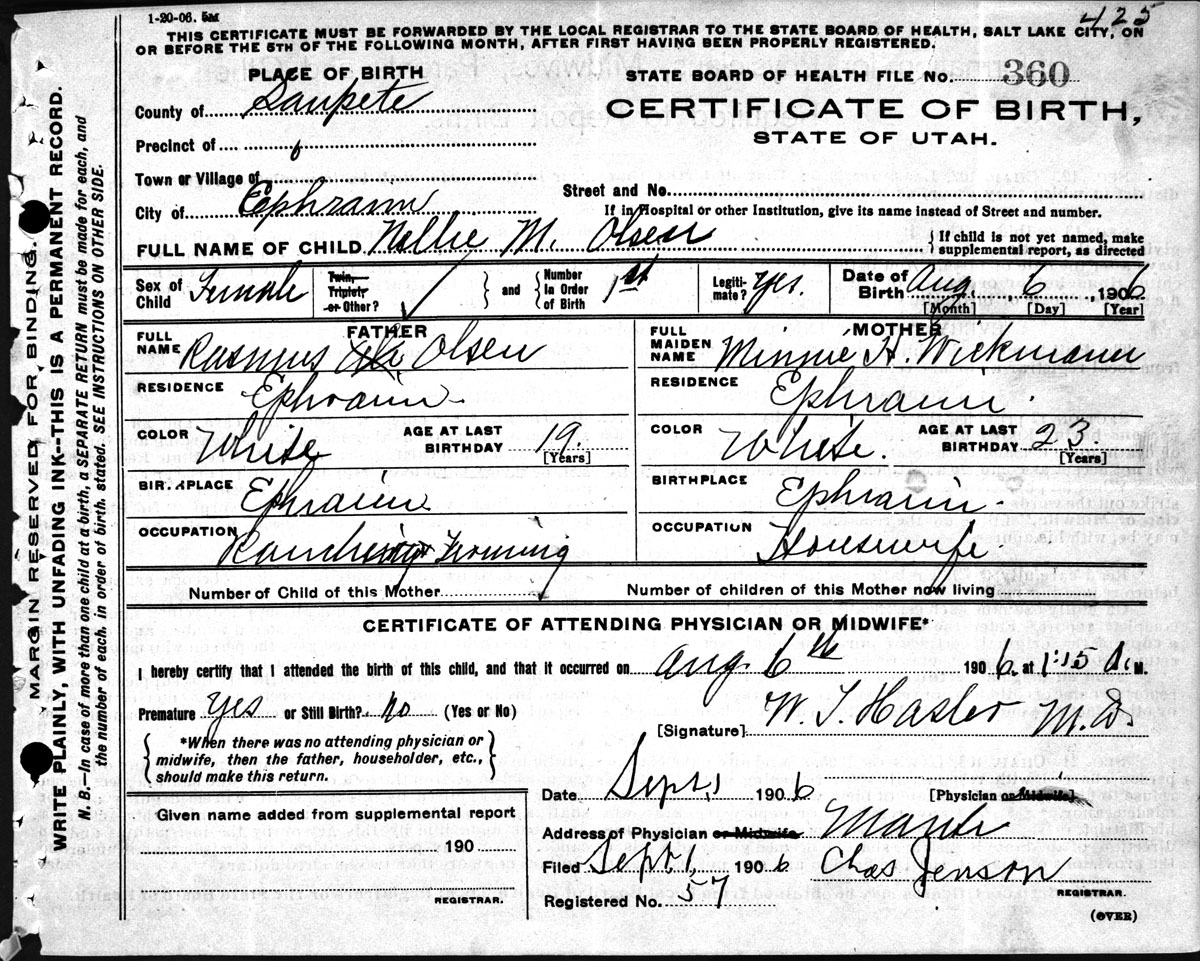 1-20-06. 5M
425
THIS CERTIFICATE MUST BE FORWARDED BY THE LOCAL REGISTRAR TO THE STATE BOARD OF HEALTH, SALT LAKE CITY, ON
OR BEFORE THE 5TH OF THE FOLLOWING MONTH, AFTER FIRST HAVING BEEN PROPERLY REGISTERED.
PLACE OF BIRTH
STATE BOARD OF HEALTH FILE No. 360
County of Sanpete
CERTIFICATE OF BIRTH,
Precinct of
STATE OF UTAH.
Town or Village of
Street and No.
City of Ephraim
If in Hospital or other Institution, give its name instead of Street and number.
FULL NAME OF CHILD Nellie M. Olsen
{If child is not yet named, make
supplemental report, as directed
Sex of Child Female
Twin, Triplet, or Other?
and
Number in Order of Birth 1st
Legitimate? Yes.
Date of Birth Aug. 6, 1906
[Month] [Day] [Year]
FATHER
MOTHER
FULL NAME Rasmus Olsen
FULL MAIDEN NAME Minnie H. Wickmann
RESIDENCE Ephraim
RESIDENCE Ephraim.
COLOR White
AGE AT LAST BIRTHDAY 19. [Years]
COLOR White.
AGE AT LAST BIRTHDAY 23 [Years]
BIRTHPLACE Ephraim
BIRTHPLACE Ephraim.
OCCUPATION Ranching
OCCUPATION Housewife.
Number of Child of this Mother
Number of children of this Mother now living
CERTIFICATE OF ATTENDING PHYSICIAN OR MIDWIFE*
I hereby certify that I attended the birth of this child, and that it occurred on Aug. 6th 1906. at 1:15 A. M.
Premature Yes or Still Birth? No (Yes or No)
[Signature] W. T. Hasler M.D.
{*When there was no attending physician or
midwife, then the father, householder, etc.,
should make this return.}
Date Sept. 1 1906
[Physician or Midwife]
Given name added from supplemental report
190
REGISTRAR.
Address of Physician or Midwife Manti
Filed Sept 1, 1906 Chas Jenson
REGISTRAR.
Registered No. 57
(OVER)
MARGIN RESERVED FOR BINDING.
WRITE PLAINLY, WITH UNFADING INK--THIS IS A PERMANENT RECORD.
N. B.--In case of more than one child at a birth, a SEPARATE RETURN must be made for each, and
the number of each, in order of birth, stated. SEE INSTRUCTIONS ON OTHER SIDE.